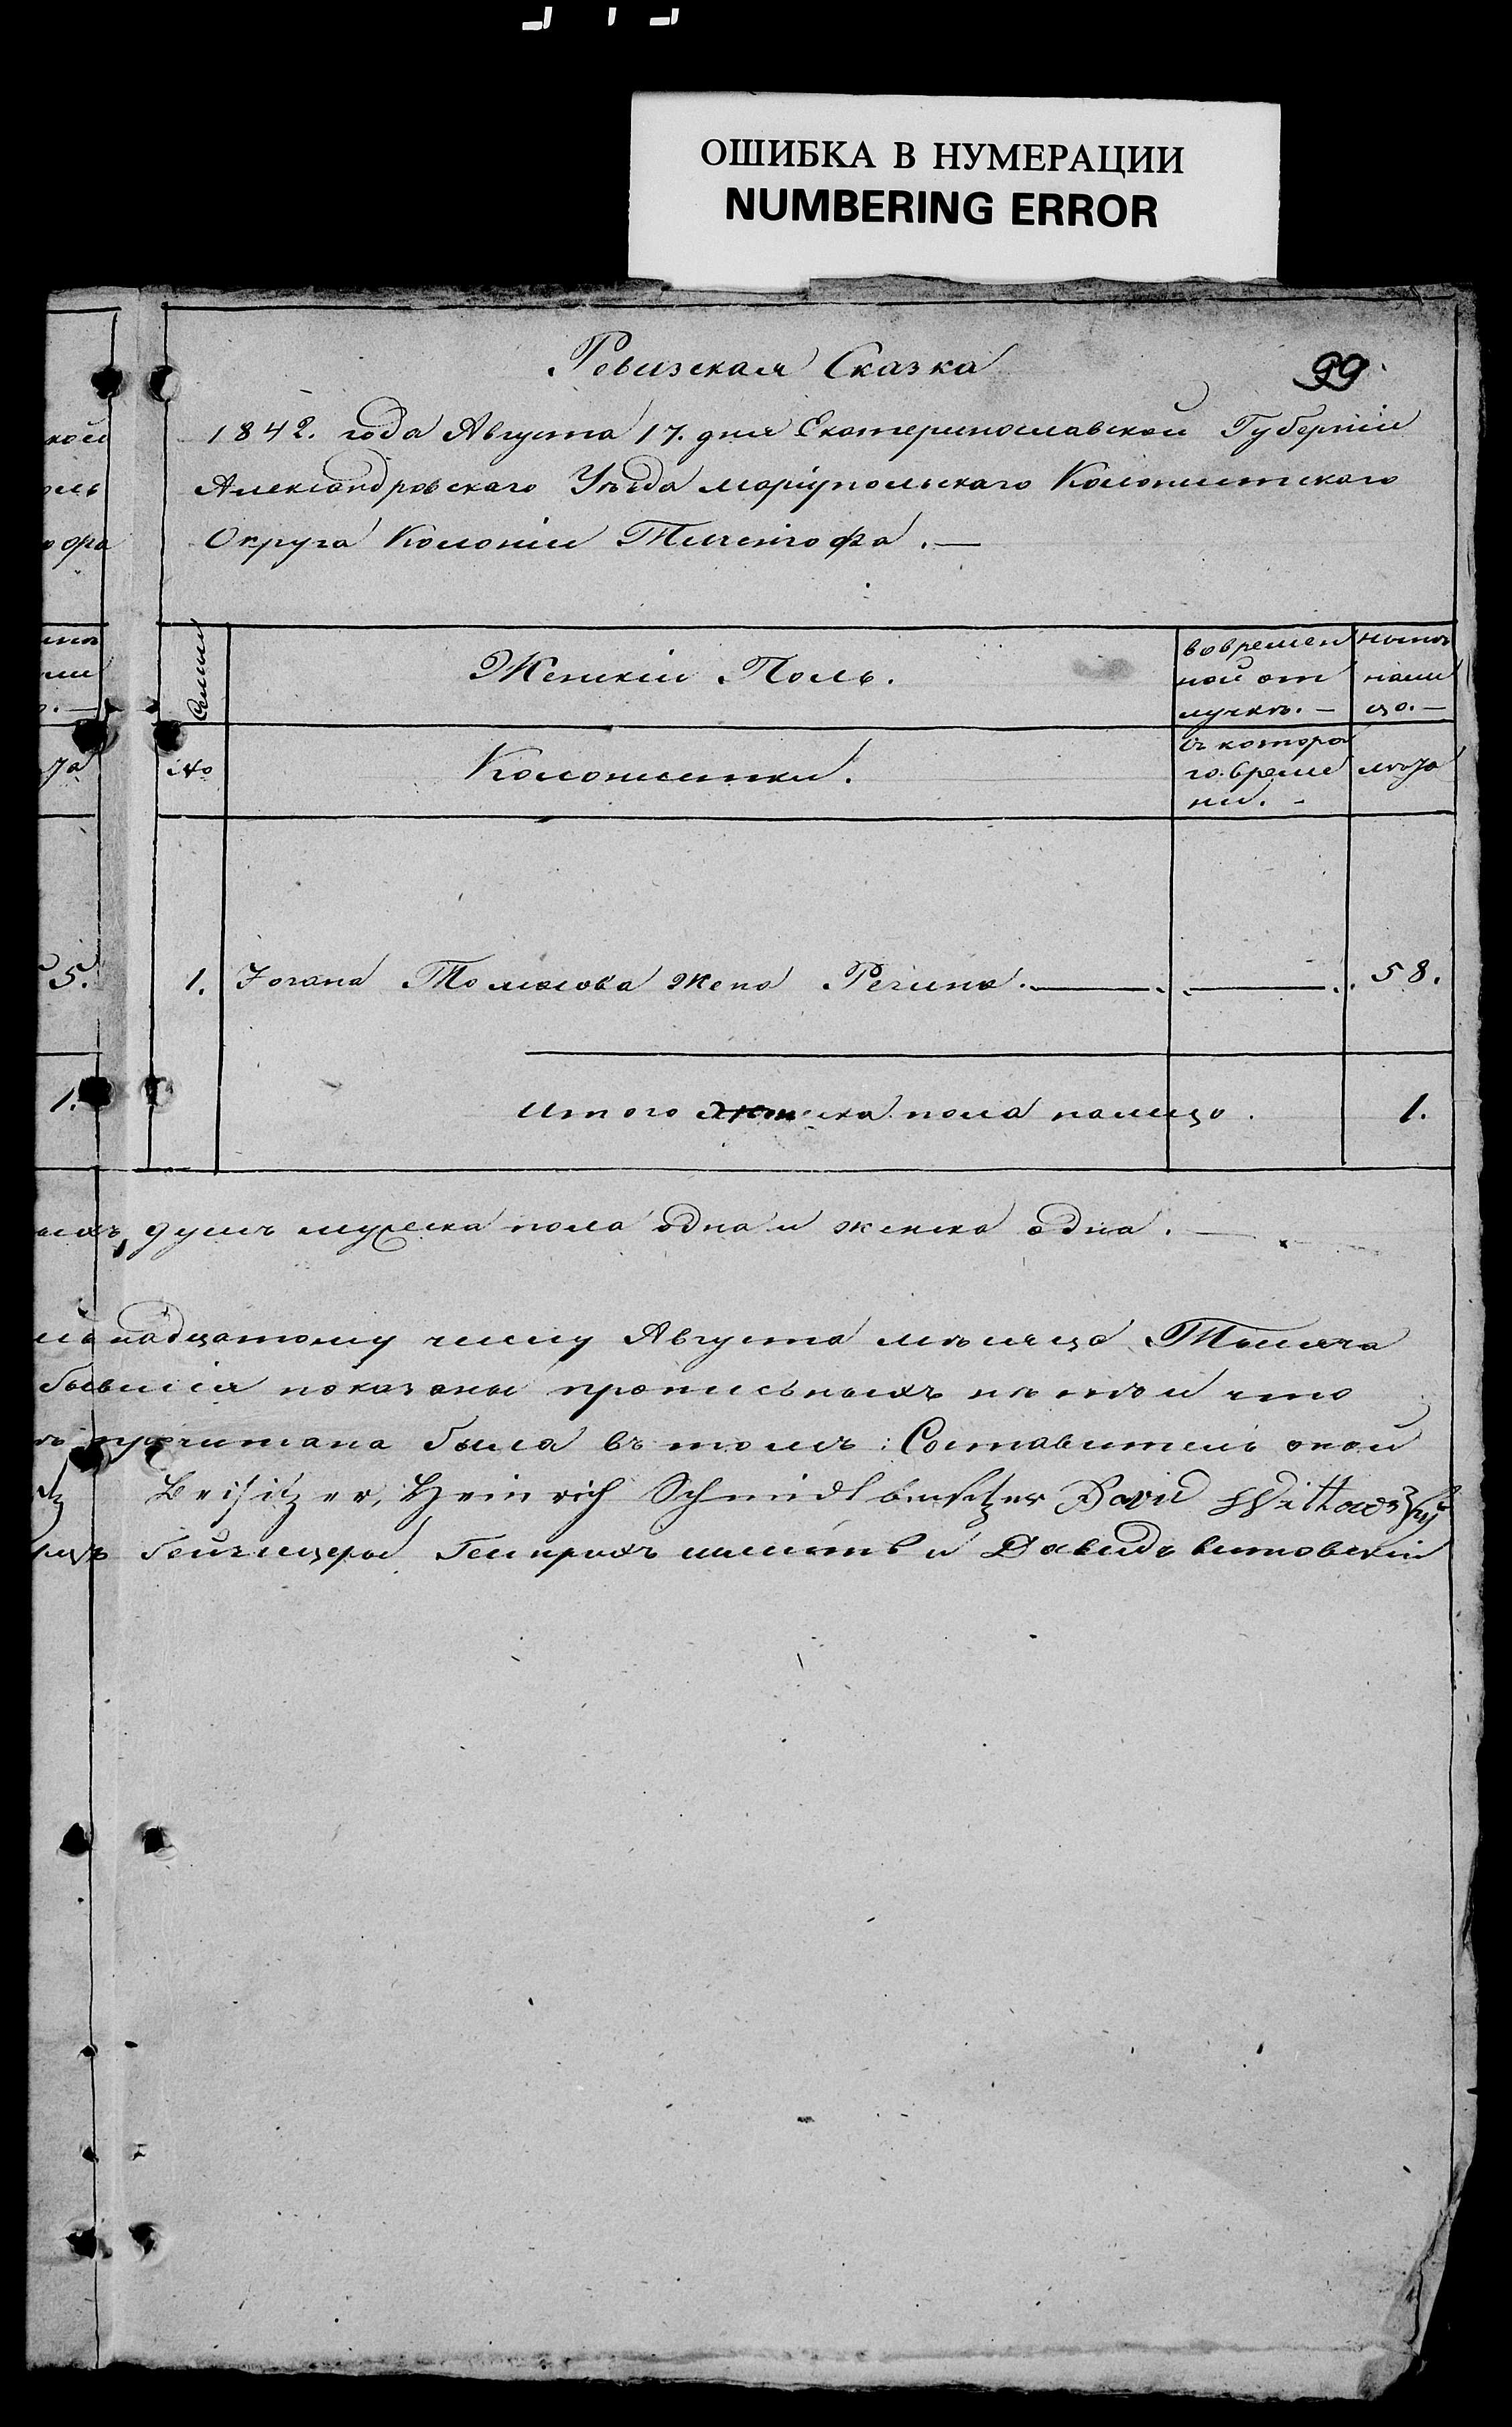 ОШИБКА В НУМЕРАЦИИ
NUMBERING ERROR
Ревизская Сказка
99
1842. года Августа 17. дня Екатеринославской Губерніи
Александровскаго Уѣзда маріупольскаго Колонистскаго
Округа Колоніи Тигенгофа.—
Семьи
Женскій Полъ.
во времен
ной от
лучкѣ.—
нынѣ
нали
цо.—
№
Колонистки.
съ которо
го време
ни.-
лѣта
5.
1. Іогана Томасова жена Регина. 58.
1.
итого женска пола налицо. 1.
душъ мужеска пола одна и женска одна.
надцатому числу Августа мѣсяца Тысяча
показаны прописныхъ нѣтъ и что
прочитана была въ томъ: Составители оной
Beisitzer, Heinrich Schmidt beisitzer David Wittowsky
бейзицеры Генрихъ шмитъ и Давидъ витовскій